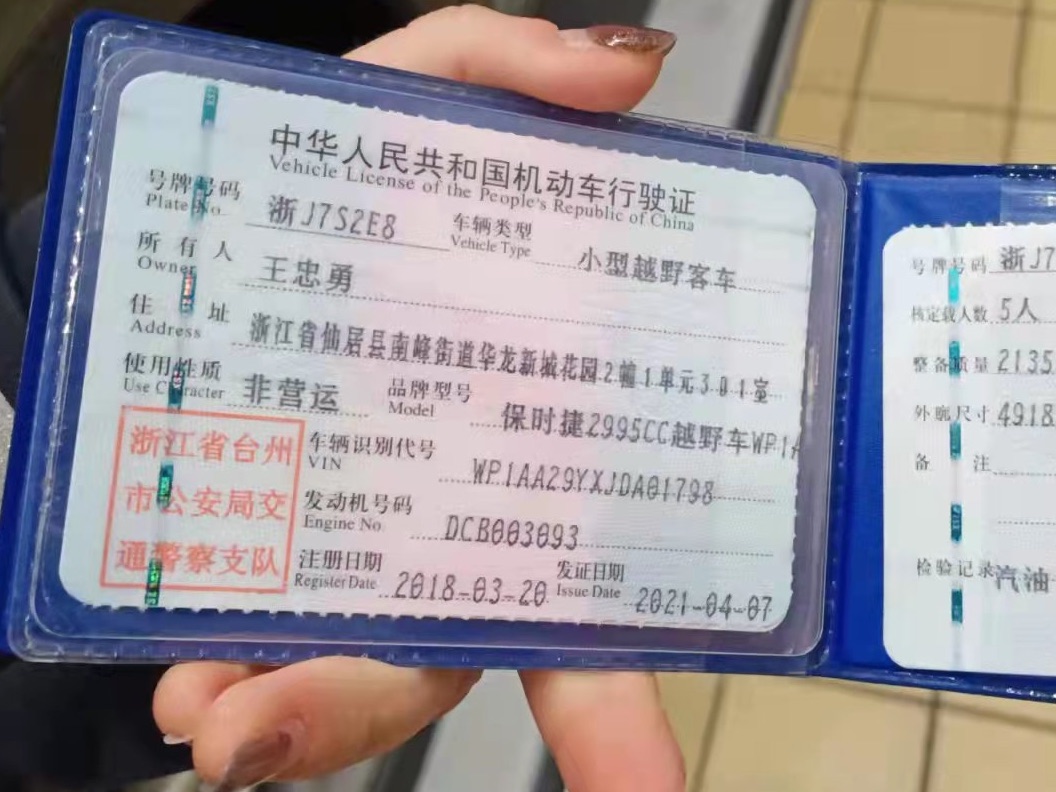 中华人民共和国机动车行驶证
Vehicle License of the People's Republic of China
号牌号码 浙J7S2E8 车辆类型 小型越野客车
Plate No. Vehicle Type
所有人 王忠勇
Owner
住址 浙江省仙居县南峰街道华龙新城花园2幢1单元301室
Address
使用性质 非营运 品牌型号 保时捷2995CC越野车WP1A
Use Character Model
浙江省台州
市公安局交
通警察支队
车辆识别代号 WP1AA29YXJDA01798
VIN
发动机号码 DCB003093
Engine No.
注册日期 2018-03-20 发证日期 2021-04-07
Register Date Issue Date
号牌号码 浙J7
核定载人数 5人
整备质量 2135
外廓尺寸 4918
备注
检验记录 汽油